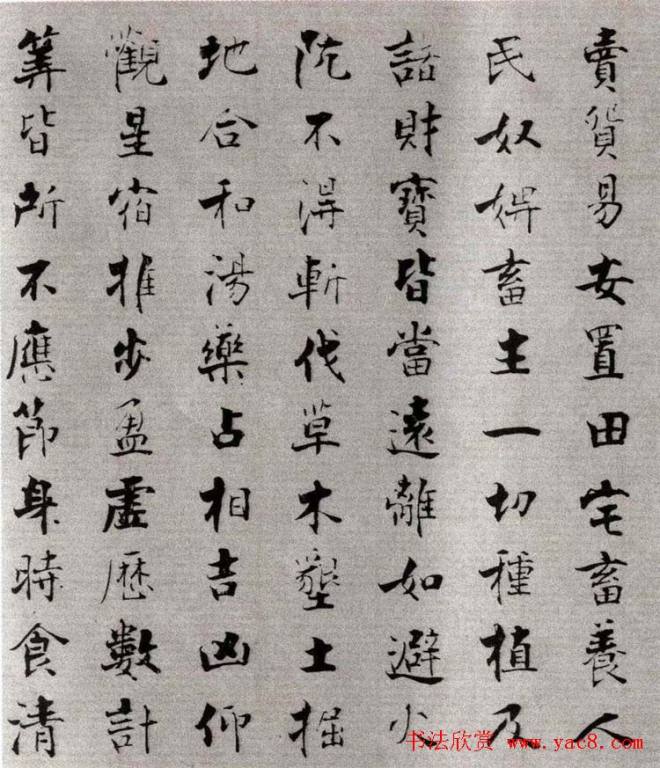 賣貿易安置田宅畜養人
民奴婢畜生一切種植及
諸財寶皆當遠離如避火
坑不得斬伐草木墾土掘
地合和湯藥占相吉凶仰
觀星宿推步盈虛歷數計
筭皆所不應節身時食清
书法欣赏 www.yac8.com